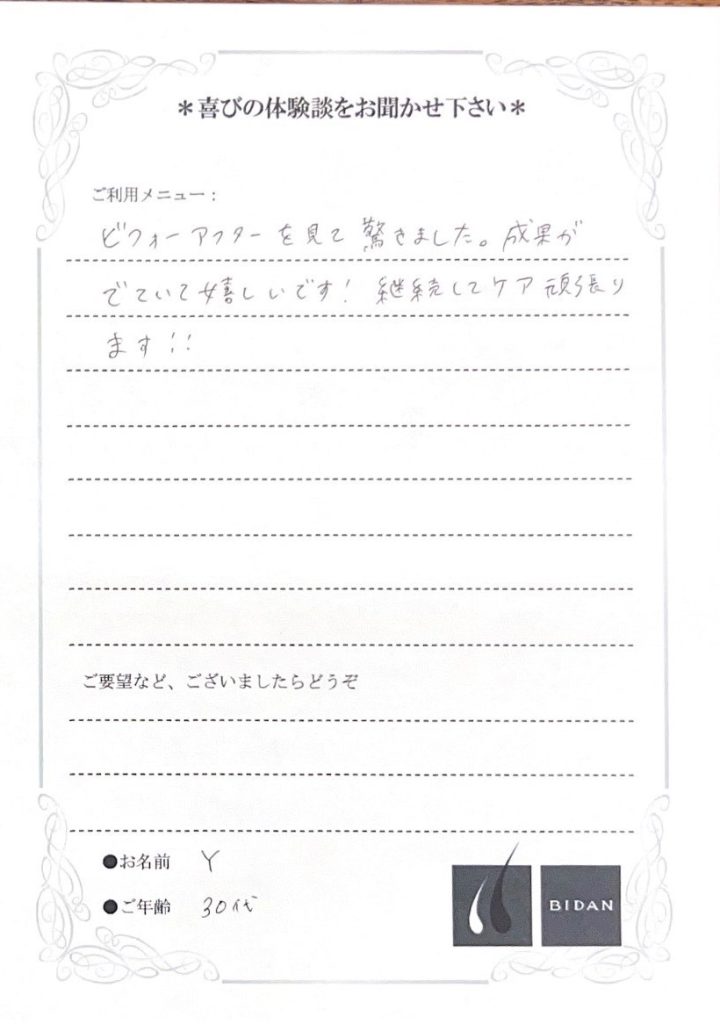 ＊喜びの体験談をお聞かせ下さい＊
ご利用メニュー：
ビフォーアフターを見て驚きました。成果が
でていて嬉しいです！継続してケア頑張り
ます！！
ご要望など、ございましたらどうぞ
●お名前 Y
●ご年齢 30代
BIDAN